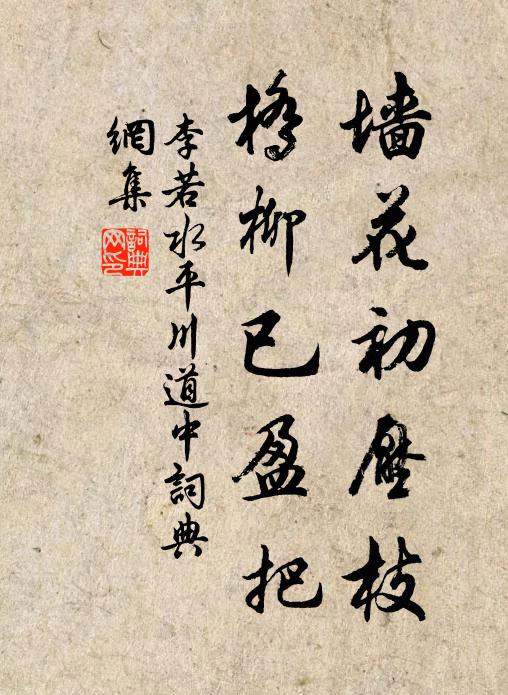 墙花初壓枝
橋柳已盈把
李若水平川道中詞典
網集
詞典
网印